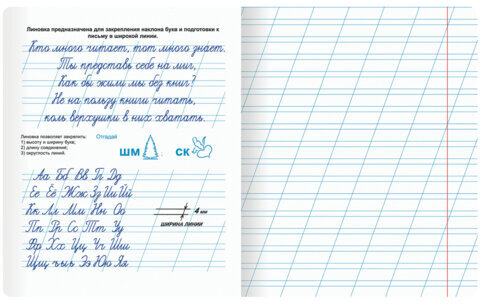 Линовка предназначена для закрепления наклона букв и подготовки к
письму в широкой линии.
Кто много читает, тот много знает.
Ты представь себе на миг,
Как бы жили мы без книг?
Не на пользу книги читать,
коль верхушки в них хватать.
Линовка позволяет закрепить:
1) высоту и ширину букв;
2) длину соединения;
3) округлость линий.
Отгадай
ШМ
СК
Аа Бб Вв Гг Дд
Ее Ёё Жж Зз Ии Йй
Кк Лл Мм Нн Оо
Пп Рр Сс Тт Уу
Фф Хх Цц Чч Шш
Щщ ъыь Ээ Юю Яя
4 мм
ШИРИНА ЛИНИИ